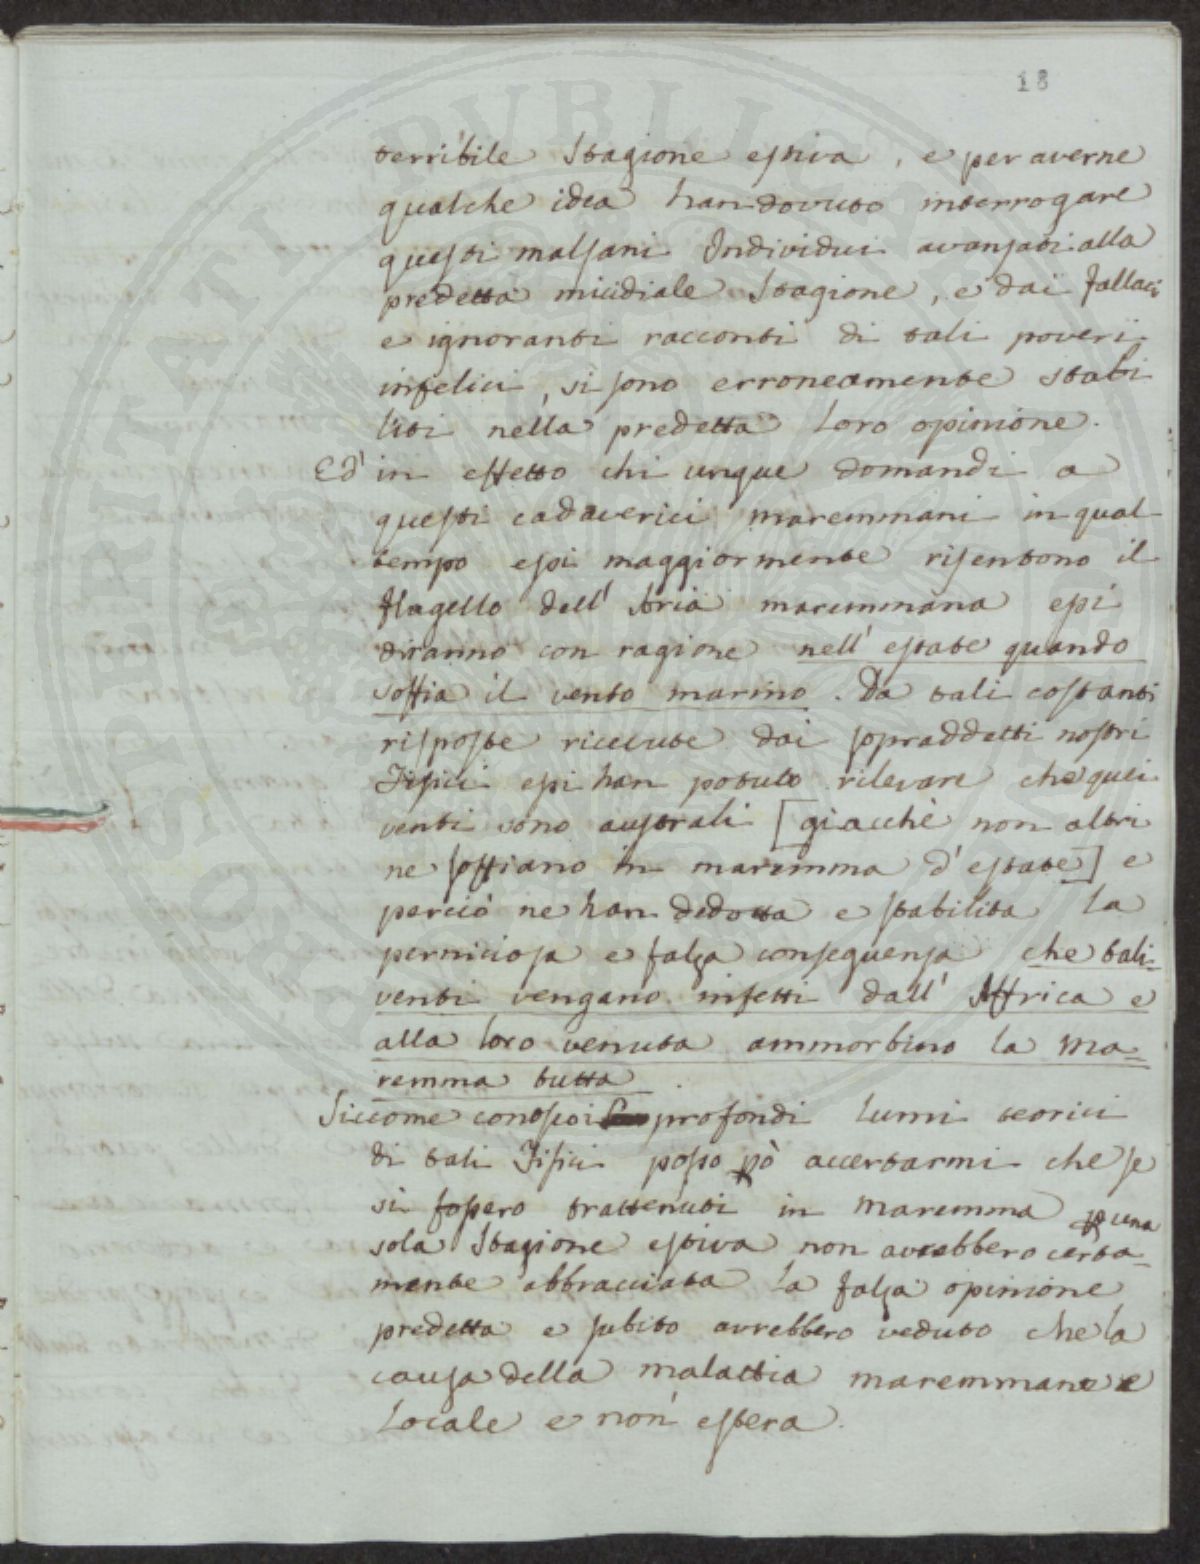 18
terribile Stagione estiva, e per averne
qualche idea han dovuto interrogare
questi malsani Individui avansati alla
predetta micidiale Stagione, e dai fallaci
e ignoranti racconti di tali poveri
infelici, si sono erroneamente stabi
liti nella predetta loro opinione.
Ed' in effetto chi unque domandi a
questi cadaverici maremmani in qual
tempo essi maggiormente risentono il
flagello dell' Aria maremmana essi
diranno con ragione nell' estate quando
soffia il vento marino. Da tali costanti
risposte ricevute dai sopraddetti nostri
Fisici essi han potuto rilevare che quei
venti sono australi [giacchè non altri
ne soffiano in maremma d' estate] e
perciò ne han dedotta e stabilita la
perniciosa e falsa conseguensa che tali
venti vengano infetti dall' Affrica e
alla loro venuta ammorbino la Ma=
remma tutta.
Siccome conosco i profondi lumi teorici
di tali Fisici posso pò accertarmi che se
si fossero trattenuti in Maremma p una
sola Stagione estiva non avrebbero certa-
mente abbracciata la falsa opinione
predetta e subito avrebbero veduto che la
causa della malattia maremmana e
Locale e non estera.
PROSPERITATI PUBLICAE